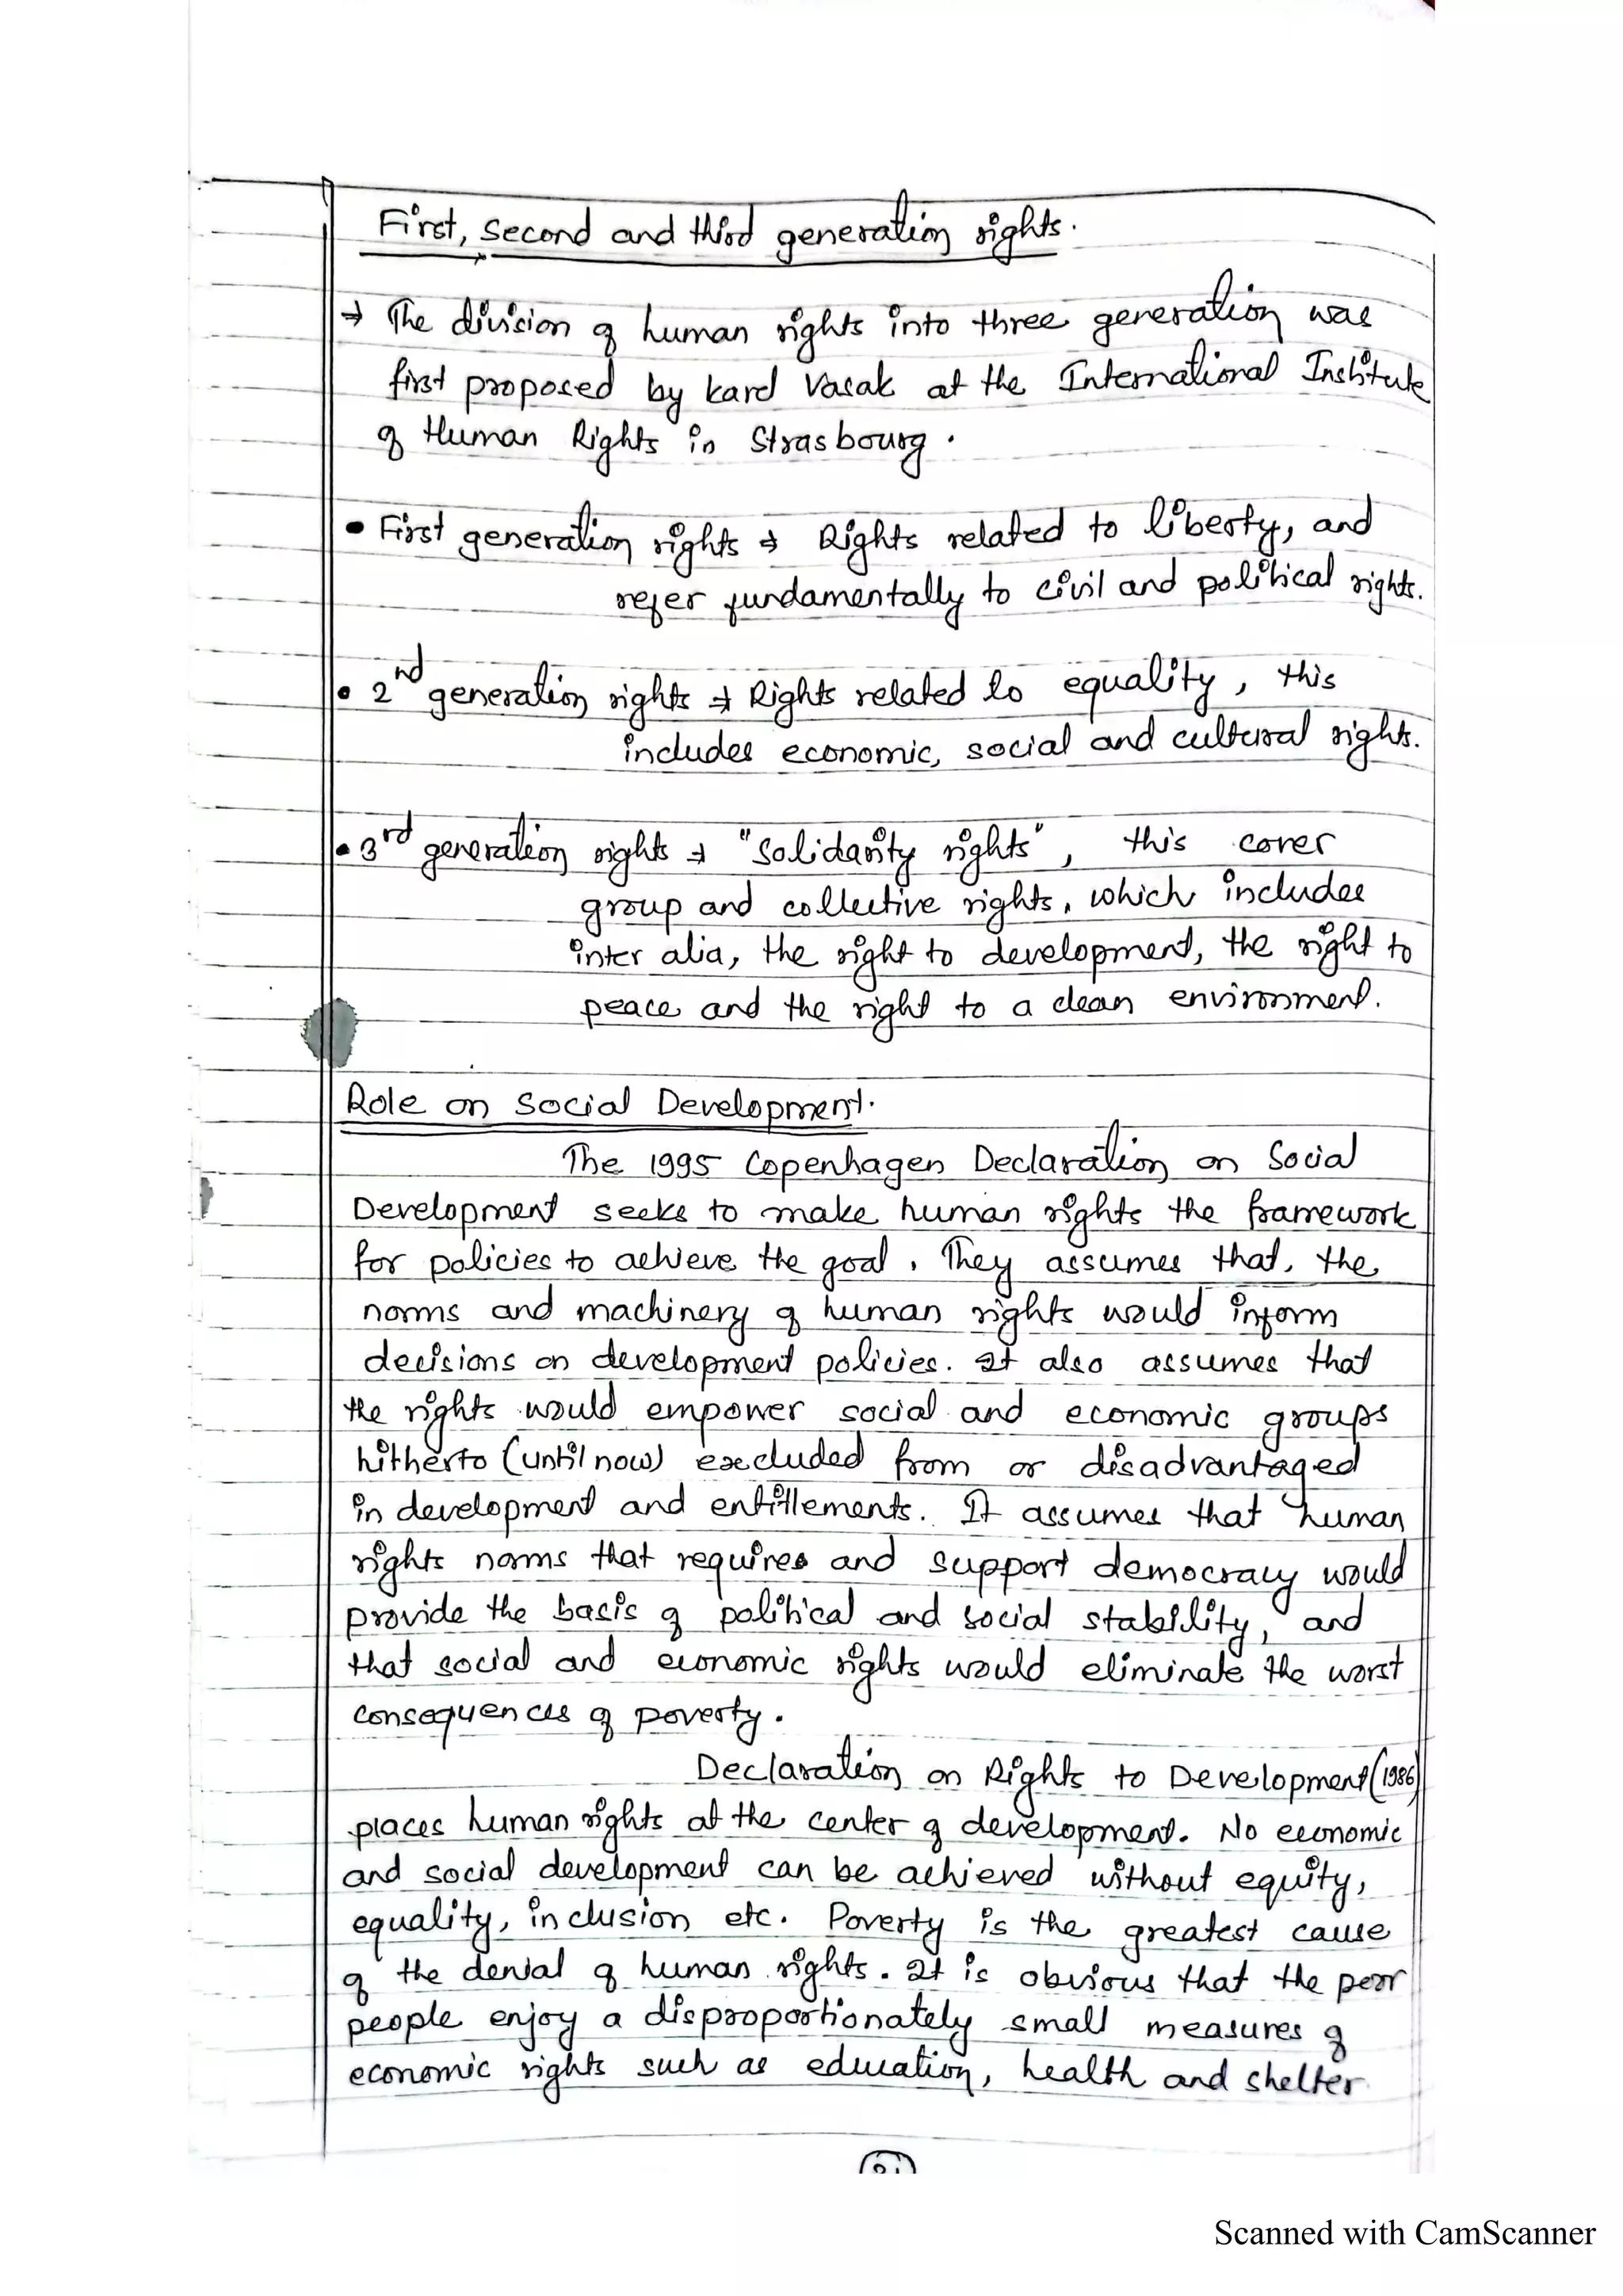 First, second and third generation rights.
→ The division of human rights into three generation was
first proposed by Karel Vasak at the International Institute
of Human Rights in Strasbourg.
• First generation rights → Rights related to liberty, and
refer fundamentally to civil and political rights.
• 2nd generation rights → Rights related to equality, this
includes economic, social and cultural rights.
• 3rd generation rights → "Solidarity rights", this cover
group and collective rights, which includes
inter alia, the right to development, the right to
peace and the right to a clean environment.
Role on Social Development.
The 1995 Copenhagen Declaration on Social
Development seeks to make human rights the framework
for policies to achieve the goal. They assumes that, the
norms and machinery of human rights would inform
decisions on development policies. It also assumes that
the rights would empower social and economic groups
hitherto (until now) excluded from or disadvantaged
in development and entitlements. It assumes that human
rights norms that requires and support democracy would
provide the basis of political and social stability, and
that social and economic rights would eliminate the worst
consequences of poverty.
Declaration on Rights to Development (1986)
places human rights at the center of development. No economic
and social development can be achieved without equity,
equality, inclusion etc. Poverty is the greatest cause
of the denial of human rights. It is obvious that the poor
people enjoy a disproportionately small measures of
economic rights such as education, health and shelter.
Scanned with CamScanner